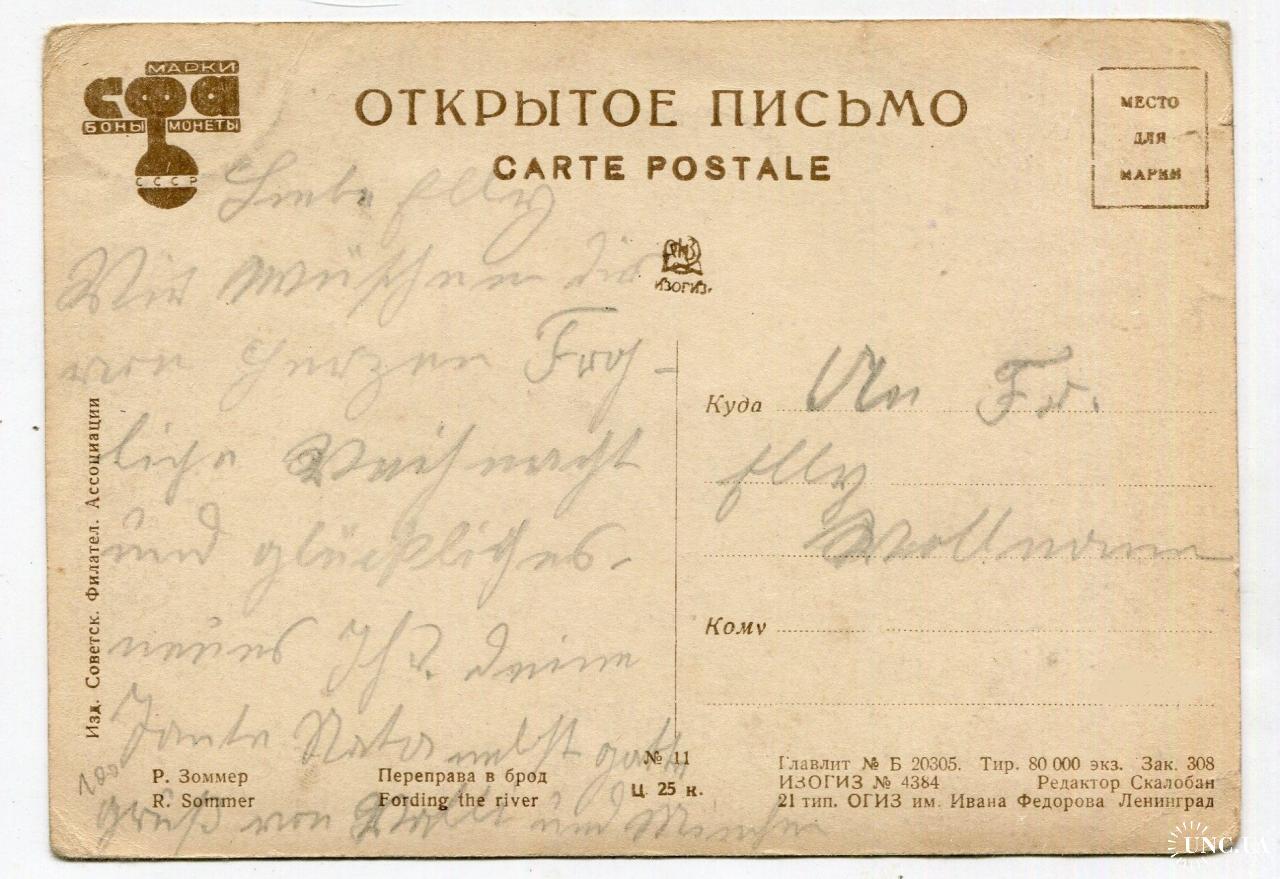 МАРКИ
СФА
БОНЫ МОНЕТЫ
СССР
ОТКРЫТОЕ ПИСЬМО
CARTE POSTALE
МЕСТО
ДЛЯ
МАРКИ
ИЗОГИЗ
Liebe Elly
Wir wünschen dir
von Herzen Fröh-
liche Weihnacht
und glückliches
neues Jhr. deine
Tante Nata nebst
gruß von und
Куда An Fr.
Elly
Wollmann
Кому
Изд. Советск. Филател. Ассоциации
Р. Зоммер
R. Sommer
Переправа в брод
Fording the river
№ 11
Ц. 25 к.
Главлит № Б 20305. Тир. 80 000 экз. Зак. 308
ИЗОГИЗ № 4384 Редактор Скалобан
21 тип. ОГИЗ им. Ивана Федорова Ленинград
UNC.UA